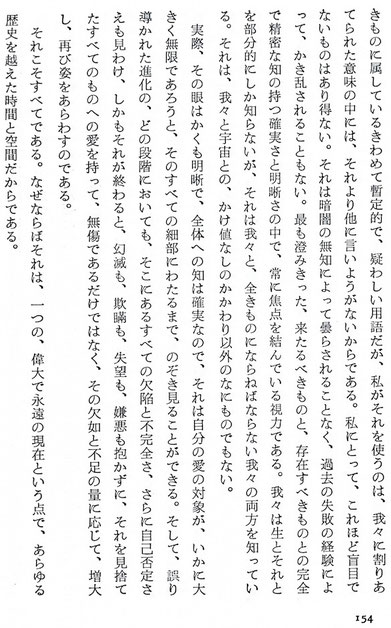 きものに属しているきわめて暫定的で、疑わしい用語だが、私がそれを使うのは、我々に割りあ
てられた意味の中には、それより他に言いようがないからである。私にとって、これほど盲目で
ないものはあり得ない。それは暗闇の無知によって曇らされることなく、過去の失敗の経験によ
って、かき乱されることもない。最も澄みきった、来たるべきものと、存在すべきものとの完全
で精密な知の持つ確実さと明晰さの中で、常に焦点を結んでいる視力である。我々は生とそれと
を部分的にしか知らないが、それは我々と、全きものにならねばならない我々の両方を知ってい
る。それは、我々と宇宙との、かけ値なしのかかわり以外のなにものでもない。
実際、その眼はかくも明晰で、全体への知は確実なので、それは自分の愛の対象が、いかに大
きく無限であろうと、そのすべての細部にわたるまで、のぞき見ることができる。そして、誤り
導かれた進化の、どの段階においても、そこにあるすべての欠陥と不完全さ、さらに自己否定さ
えも見わけ、しかもそれが終わると、幻滅も、欺瞞も、失望も、嫌悪も抱かずに、それを見捨て
たすべてのものへの愛を持って、無傷であるだけではなく、その欠如と不足の量に応じて、増大
し、再び姿をあらわすのである。
それこそすべてである。なぜならばそれは、一つの、偉大で永遠の現在という点で、あらゆる
歴史を越えた時間と空間だからである。
154